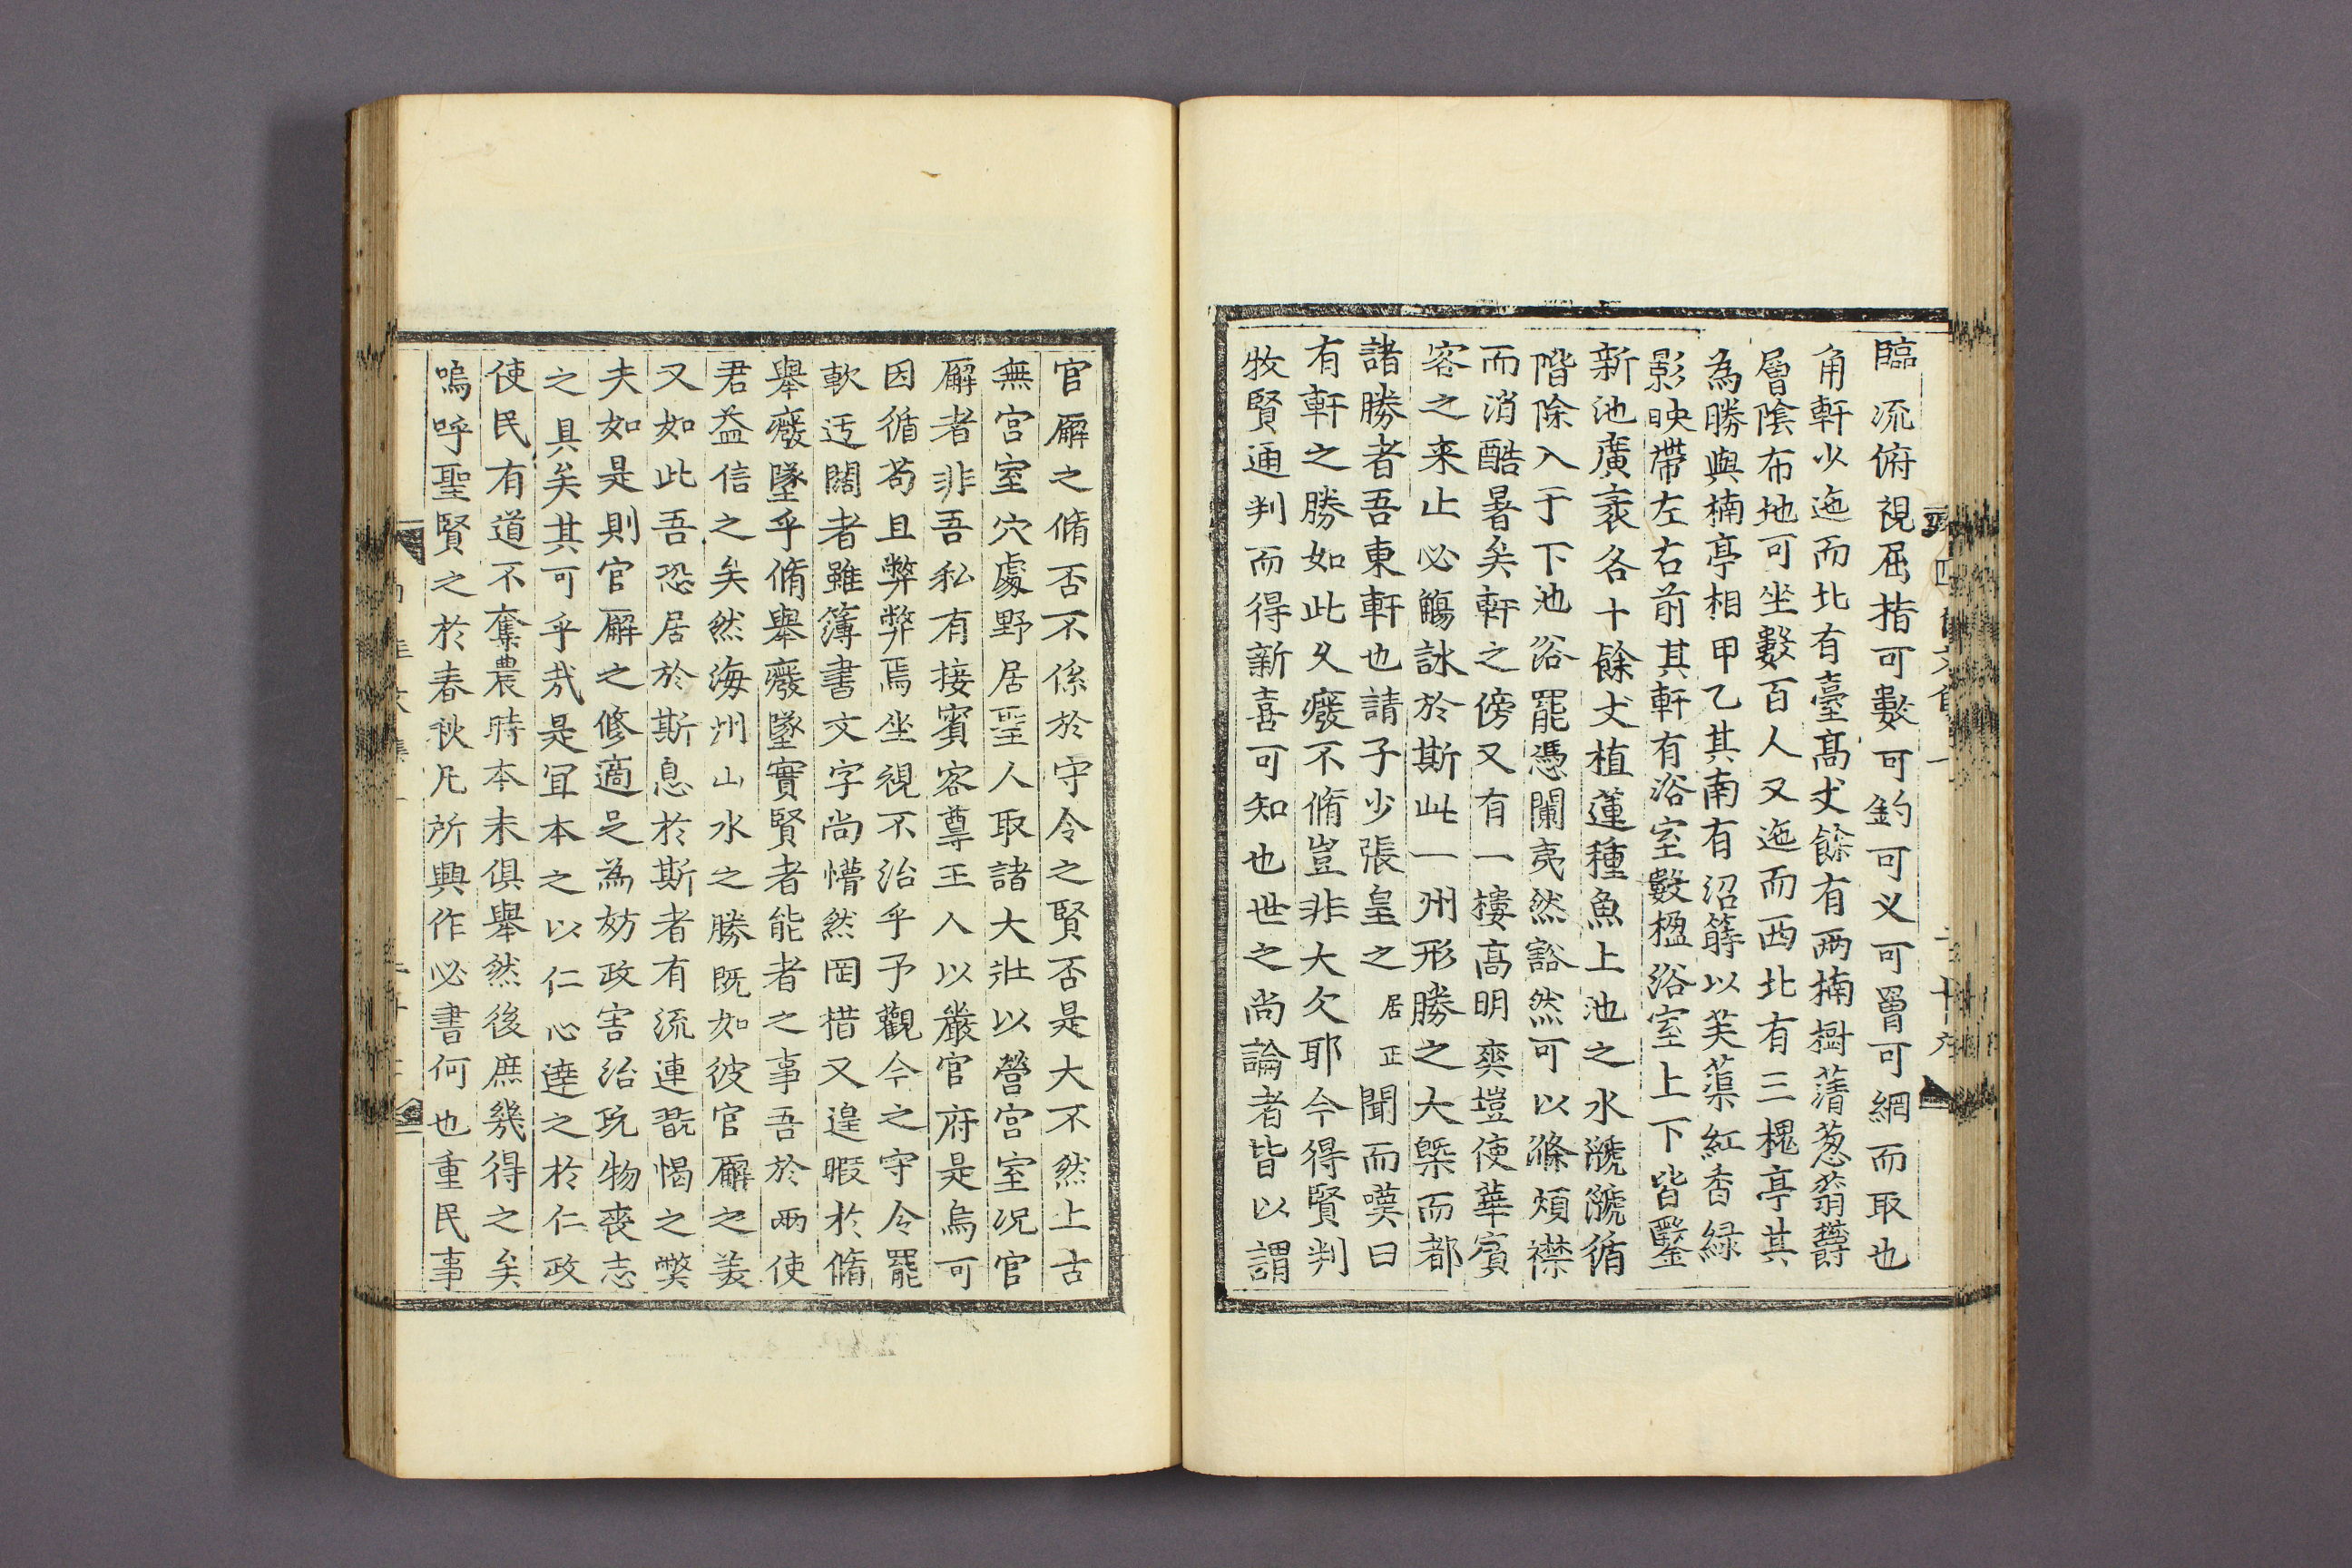 臨流俯視屈指可數可釣可义可罾可網而取也
角軒少迤而北有臺髙丈餘有兩楠樹蒨葱蓊欝
層陰布地可坐數百人又迤而西北有三槐亭其
為勝與楠亭相甲乙其南有沼簿以芙蕖紅香緑
影映帶左右前其軒有浴室數楹浴室上下皆鑿
新池廣袤各十餘丈植蓮種魚上池之水㶁㶁循
階除入于下池浴罷憑闌夷然豁然可以滌煩襟
而消酷暑矣軒之傍又有一樓髙明爽塏使華賓
容之来止必觴詠於斯此一州形勝之大槩而都
諸勝者吾東軒也請子少張皇之居正聞而嘆曰
有軒之勝如此久癈不脩豈非大欠耶今得賢判
牧賢通判而得新喜可知也世之尚論者皆以謂
官廨之脩否不係於守令之賢否是大不然上古
無宫室穴處野居聖人取諸大壯以營宫室况官
廨者非吾私有接賓客尊王人以嚴官府是烏可
因循苟且弊弊焉坐視不治乎予觀今之守令罷
軟迃闊者雖簿書文字尚懵然罔措又遑暇於脩
舉癈墜乎脩舉癈墜實賢者能者之事吾於兩使
君益信之矣然海州山水之勝既如彼官廨之羙
又如此吾恐居於斯息於斯者有流連翫愒之弊
夫如是則官廨之修適足為妨政害治玩物喪志
之具矣其可乎㢤是冝本之以仁心達之於仁政
使民有道不奪農時本末俱舉然後庶幾得之矣
嗚呼聖賢之於春秋凡所興作必書何也重民事